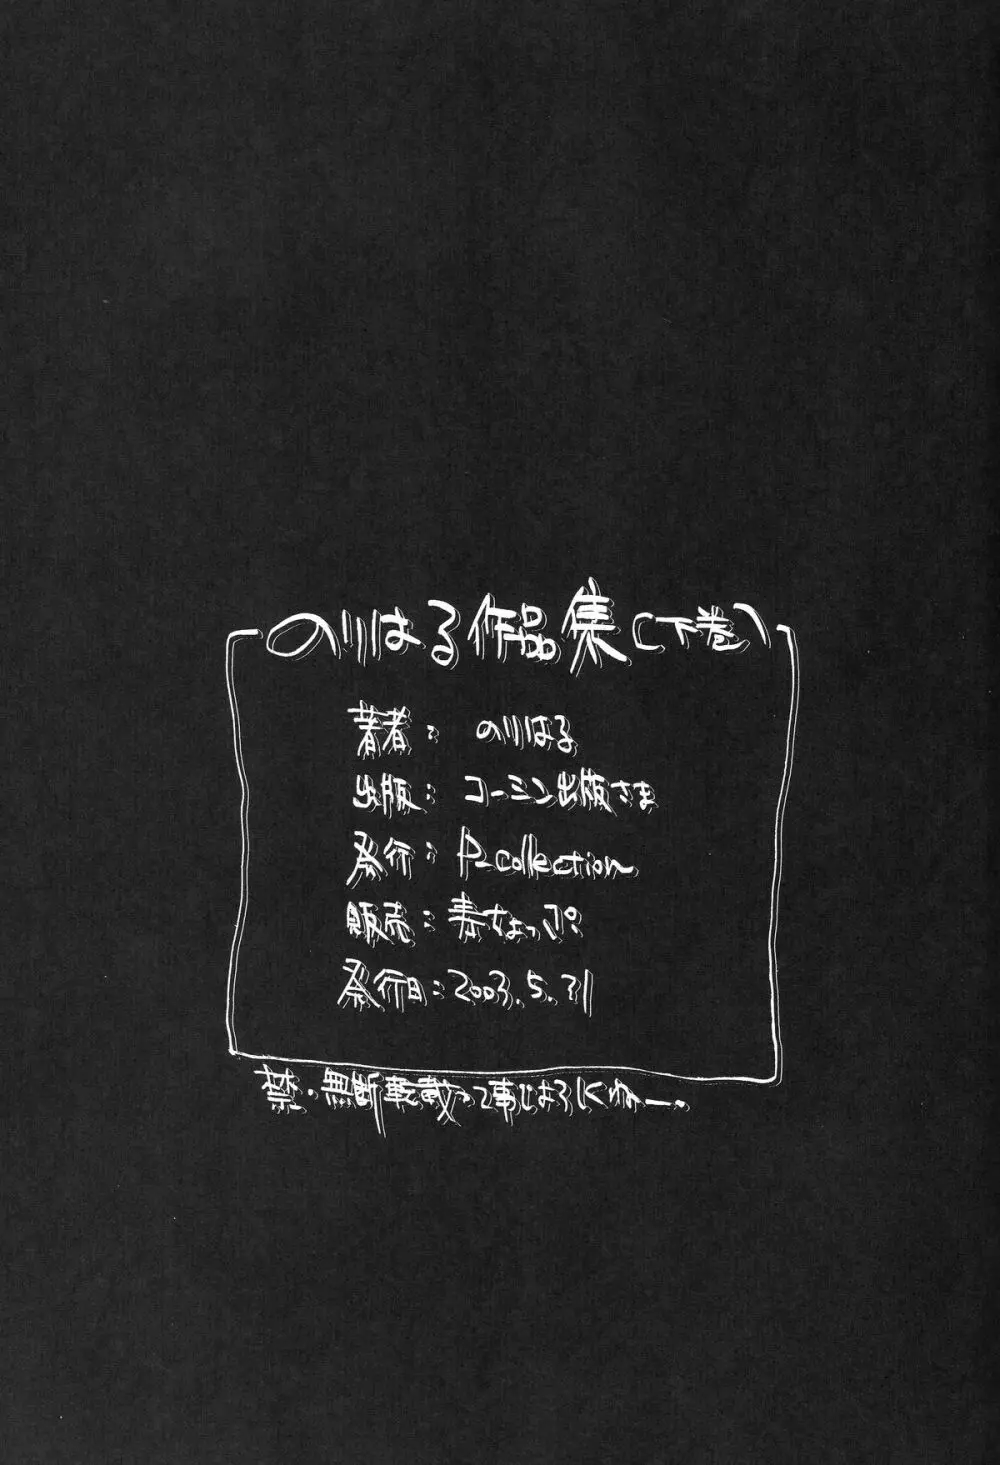 のりはる作品集(下巻)
著者: のりはる
出版: コーミン出版さま
発行: P-collection
販売: 毒ちょっぷ
発行日: 2003.5.31
禁・無断転載って事でよろしくねー.